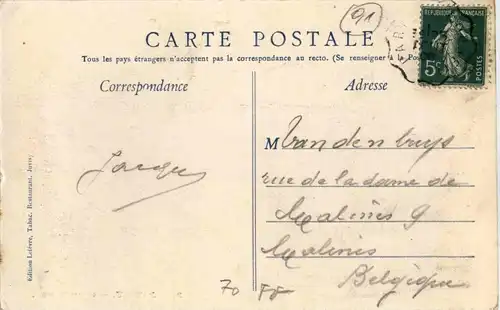 91
CARTE POSTALE
Tous les pays étrangers n'acceptent pas la correspondance au recto. (Se renseigner à la
Correspondance
Adresse
REPUBLIQUE FRANÇAISE
5c
POSTES
M Vandenbuys
rue de la dame de
Malines 9
Malines
Belgique
Jacques
70
Edition Lefèvre, Tabac, Restaurant,